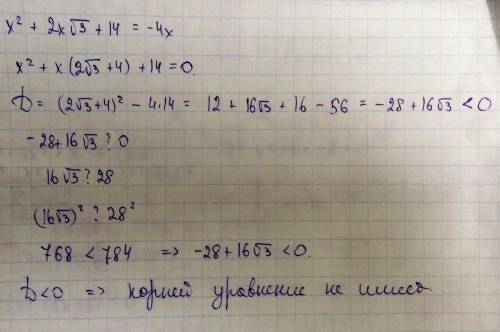 x² + 2x√3 + 14 = -4x
x² + x(2√3 + 4) + 14 = 0.
D = (2√3+4)² - 4·14 = 12 + 16√3 + 16 - 56 = -28 + 16√3 < 0
-28 + 16√3 ? 0
16√3 ? 28
(16√3)² ? 28²
768 < 784 => -28 + 16√3 < 0.
D < 0 => корней уравнение не имеет.